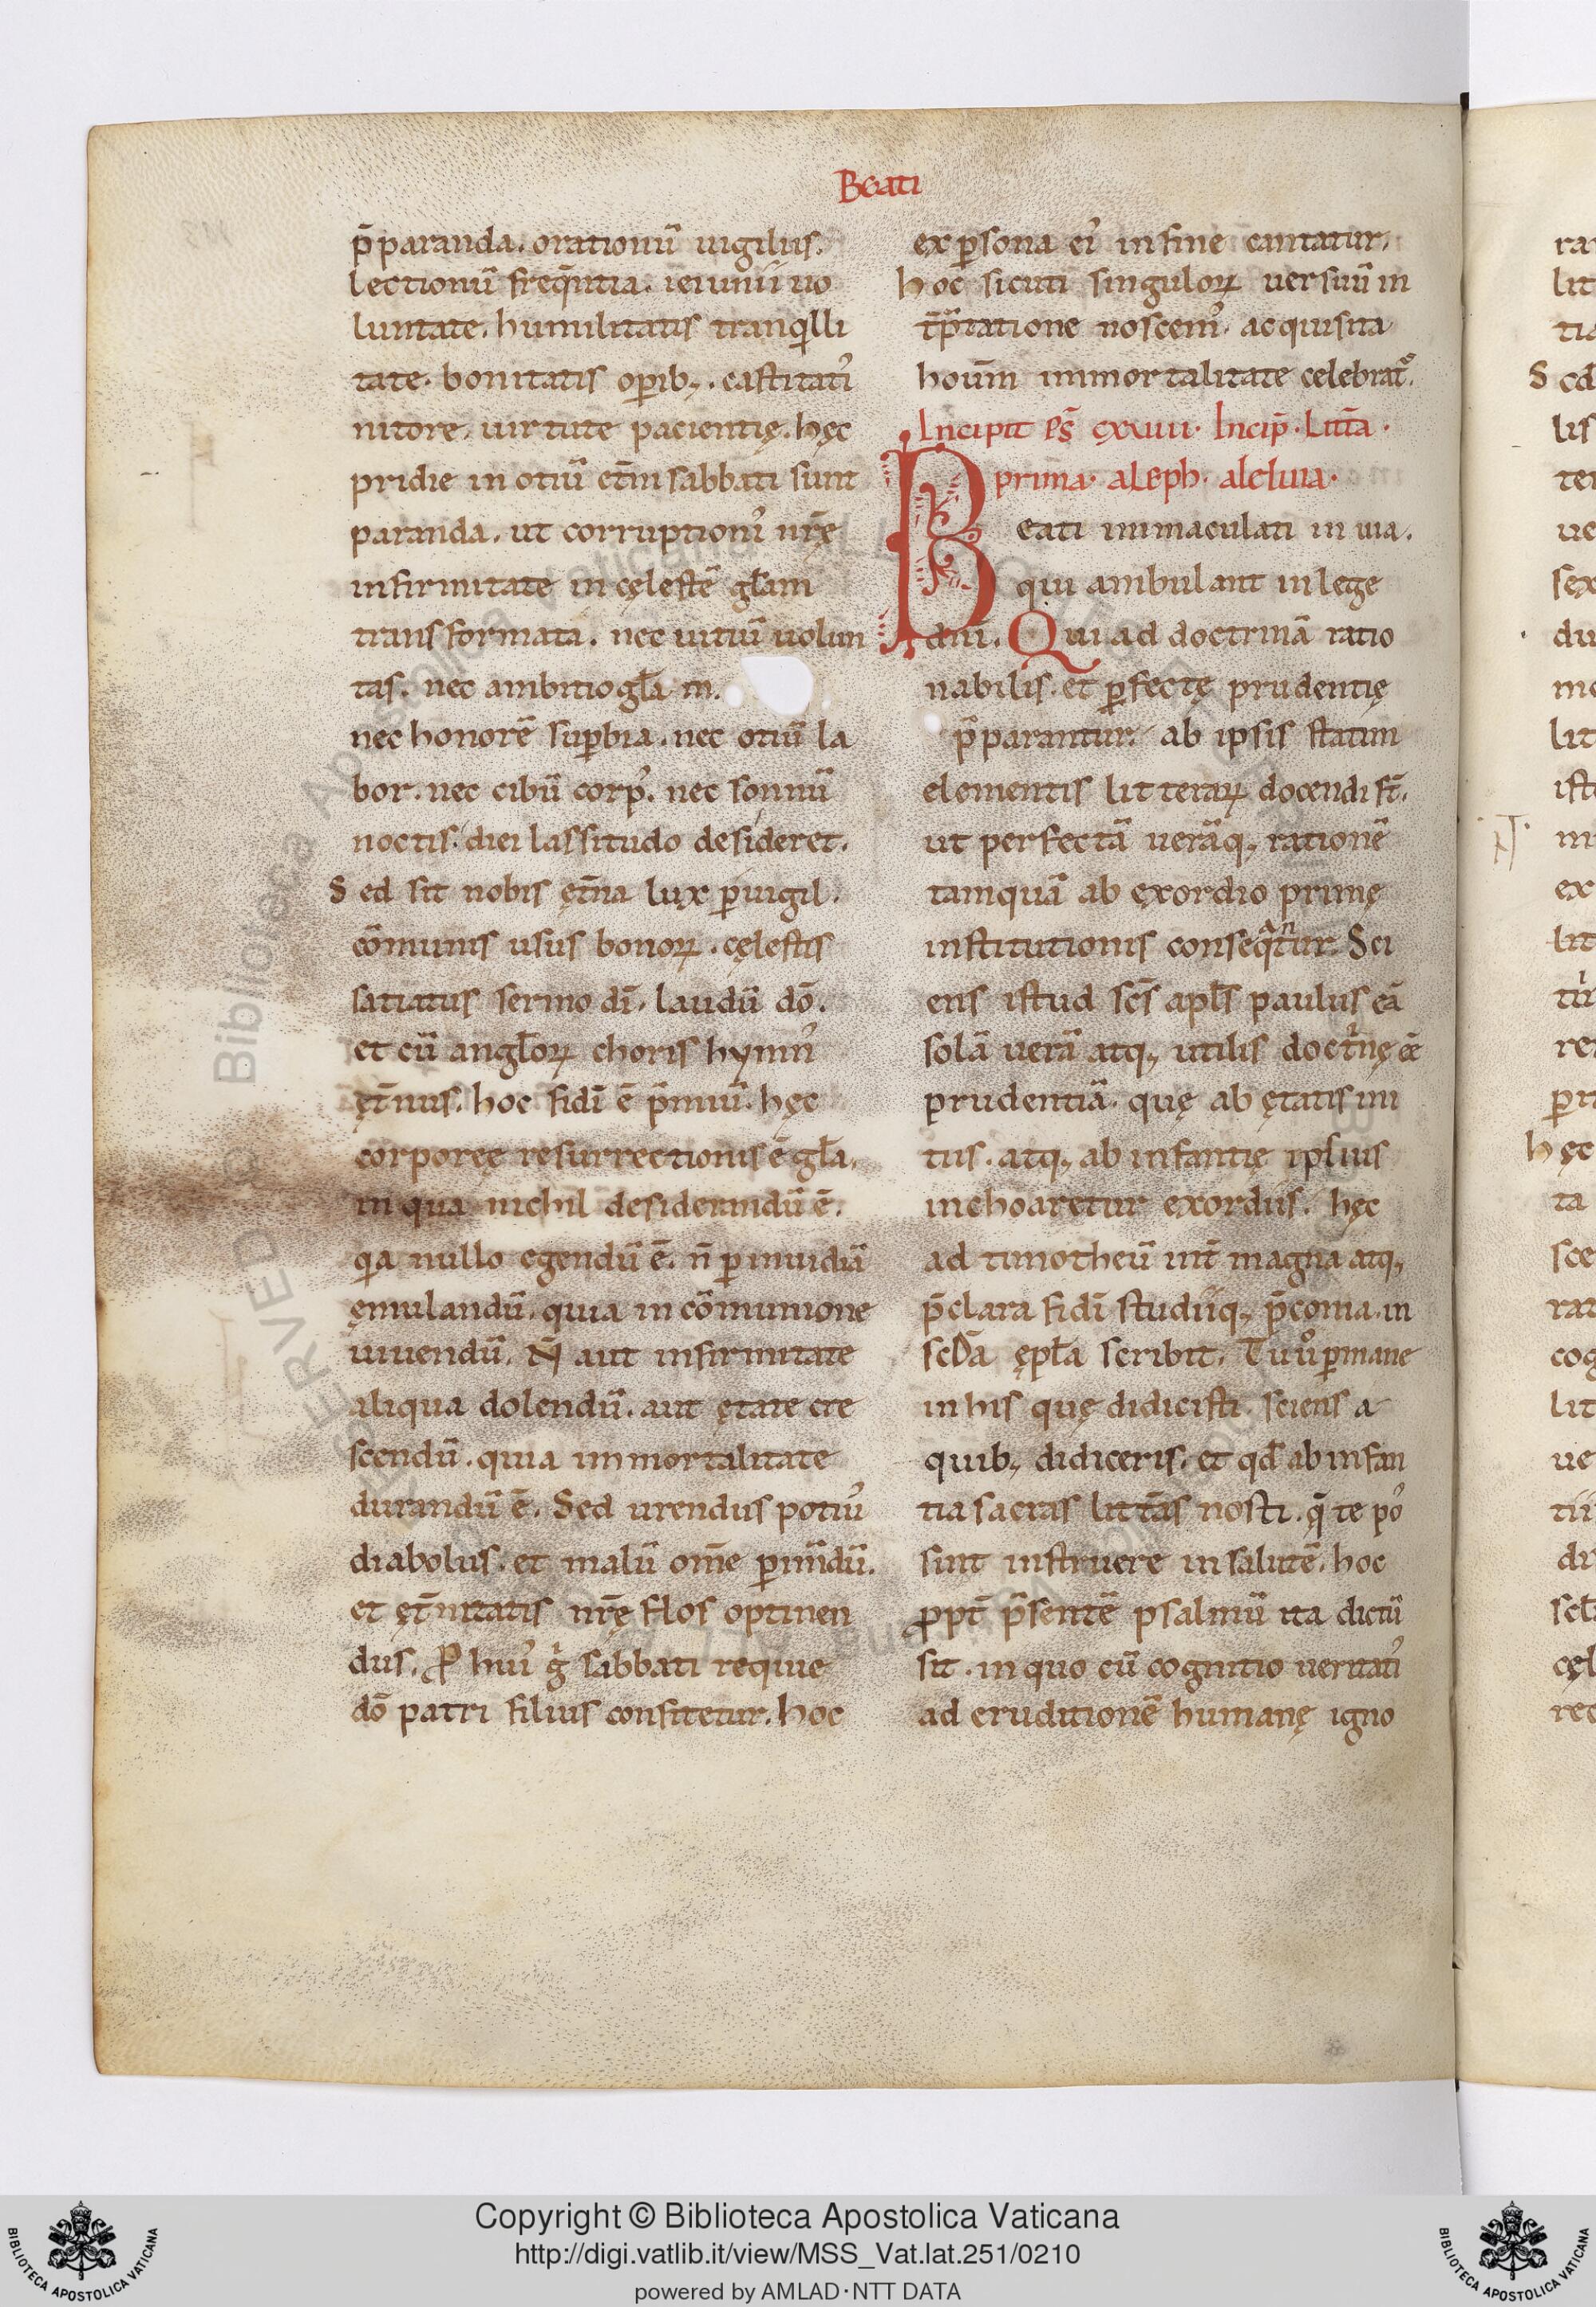 Beati
p̄paranda. orationū uigiliis.
lectionū freq̄ntia. ieiunii uo
luntate. humilitatis tranqͥlli
tate. bonitatis oꝑib;. castitatıꝰ
nitore. uirtute pacientię. hęc
pridie in otiū et̄ni sabbati sunt
paranda. ut corruptionıꝰ nr̄ę
infirmitate in cęlestē gl̄am
transformata. nec uitiū uolun
tas. nec ambitio gl̄a m.
nec honorē suꝑbia. nec otiū la
bor. nec cibū corpꝰ. nec somnū
noctis. diei lassitudo desideret.
Sed sit nobis ęt̄na lux ꝑuigil.
cōmunis usus bonoꝝ. cęlestis
satiatus sermo dī. laudū dō.
et cū angl̄oꝝ choris hymnꝰ
ęt̄nus. hoc fidī ē p̄miū. hęc
corporeę resurrectionis ē gl̄a.
in qua nichil desiderandū ē.
qͥa nullo egendū ē. n̄ ꝑ inuidiā
ęmulandū. quia in cōmunione
uiuendū. N̄ aut infirmitate
aliqua dolendū. aut ętate cre
scendū. quia immortalitate
durandū ē. Sed urendus potiuꝰ
diabolus. et malū om̄e ꝑim̄dū.
et ęt̄nitatis nr̄ę flos optinen
dus. P huiꝰ gͥ sabbati requie
dō patri filius confitetur. hoc
ex ꝑsona eiꝰ in fine cantatur.
hoc̄ sicuti singuloꝝ uersuū in
t̄p̄tatione noscemꝰ. acquisita
houm̄ immortalitate celebrat̉.
Incipit ps̄ cxuiii. Incip̄. Litt̄a.
prima. aleph. aleluia.
Beati immaculati in uia.
qui ambulant in lege
dn̄i. Qui ad doctrinā ratio
nabilis. et ꝑfectę prudentię
p̄parantur. ab ipsis statim
elementis litteraꝝ docendi st̄.
ut perfectā uerāq; rationē
tamquā ab exordio primę
institutionis conseqͣn̄tur. Sci
ens istud scs̄ apl̄s paulus eā
solā uerā atq; utilis doctͥnę ēē
prudentiā. quę ab ętatis ini
tus. atq; ab infantię ipsius
inchoaretur exordiis. hęc
ad timotheū int̄ magna atq;
p̄clara fidī studiiq; p̄conia. in
scd̄a ępl̄a scribit. Tu uͦ ꝑmane
in his quę didicisti. sciens a
quib; didiceris. et qd̄ ab infan
tia sacras litt̄as nosti. q̄ te poſ
sint instruere in salutē. hoc
ꝓpt̄ p̄sentē psalmū ita dictū
sit. in quo cū cognitio ueritatıꝰ
ad eruditionē humanę igno
Copyright © Biblioteca Apostolica Vaticana
http://digi.vatlib.it/view/MSS_Vat.lat.251/0210
powered by AMLAD·NTT DATA